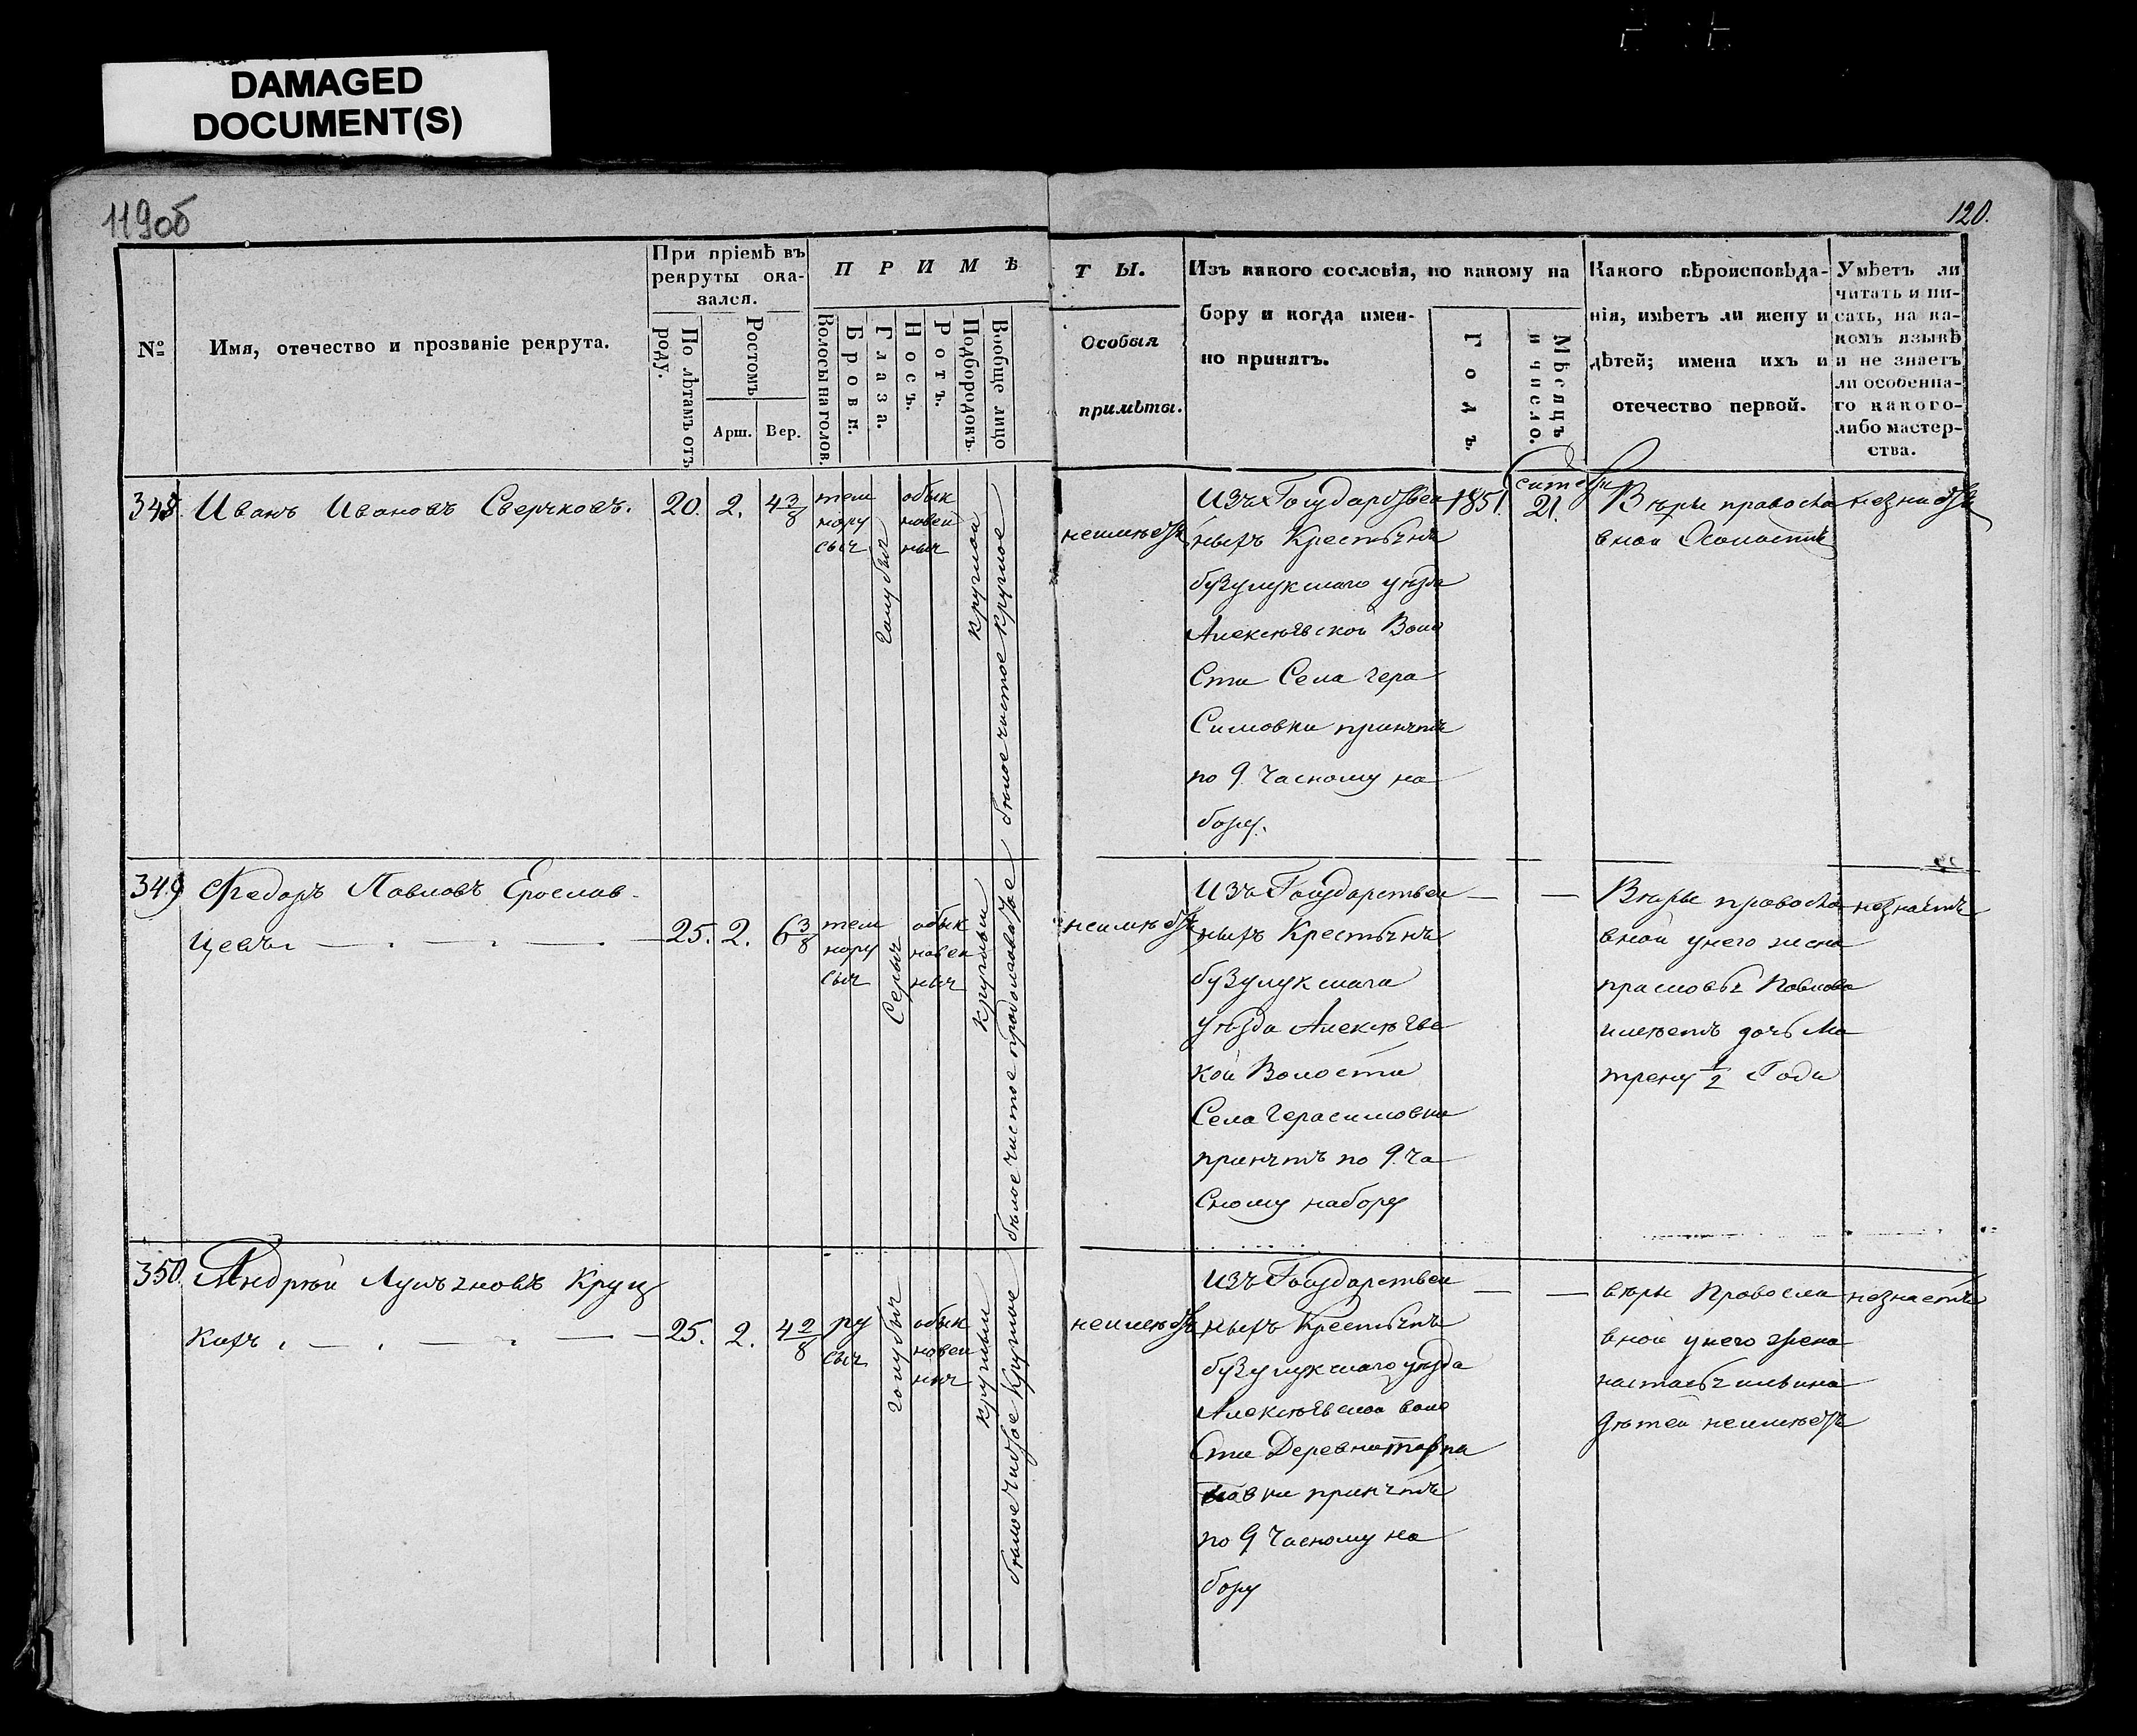 DAMAGED
DOCUMENT(S)
119об
120.
№
Имя, отечество и прозваніе рекрута.
При пріемѣ въ
рекруты ока-
зался.
По лѣтамъ отъ
роду.
Ростомъ
Арш.
Вер.
П Р И М Ѣ
Волосы на голов.
Брови.
Глаза.
Носъ.
Ротъ.
Подбородокъ.
Вообще лицо
Т Ы.
Особыя
примѣты.
Изъ какого сословія, по какому на
бору и когда имен-
но принятъ.
Годъ.
Мѣсяцъ
и число.
Какого вѣроисповѣда-
нія, имѣетъ ли жену и
дѣтей; имена ихъ и
отечество первой.
Умѣетъ ли
читать и пи-
сать, на ка-
комъ языкѣ
и не знаетъ
ли особенна-
го какого-
либо мастер-
ства.
348. Иванъ Ивановъ Сверчковъ.
20. 2. 4 3/8
тем
нору
сыя
голубыя
обык
новен
ныя
круглой
бѣлое чистое круглое
неимѣетъ
Изъ Государствен
ныхъ Крестьянъ
бузулукскаго уѣзда
Алексѣевской Воло
Сти Села Гера
Симовки принятъ
по 9. Часному на
бору.
1851.
21.
Вѣры правосла
вной Холостъ
незнаетъ
349 Федоръ Павловъ Ерослав-
цевъ.
25. 2. 6 3/8
тем
нору
сыя
Серыя
обык
новен
ныя
круглый
бѣлое чистое продолговатое
неимѣетъ
Изъ Государствен
ныхъ Крестьянъ
бузулукскага
уѣзда Алексѣевс
кой Волости
Села Герасимовки
принятъ по 9. Ча
Сному набору
Вѣры правосла
вной унего жена
прасковья Павлова
имѣетъ дочь Ма
трену 1/2 Года
незнаетъ
350. Андрѣй Лукъяновъ Круц
кихъ.
25. 2. 4 2/8
ру
сыя
голубыя
обык
новен
ныя
круглый
бѣлое чистое Круглое
неимѣетъ
Изъ Государствен
ныхъ Крестьянъ
бузулукскаго уѣзда
Алексѣевской воло
Сти Деревни
принятъ
по 9 Часному на
бору
вѣры Правосла
вной унего жена
настасья ильина
дѣтей неимѣетъ
незнаетъ